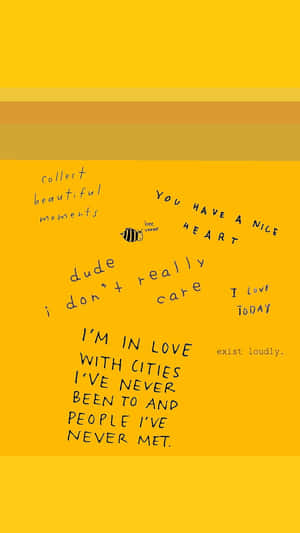 collect
beautiful
moments
YOU HAVE A NICE
HEART
bee
dude
i don't really
care
I LOVE
TODAY
I'M IN LOVE
WITH CITIES
I'VE NEVER
BEEN TO AND
PEOPLE I'VE
NEVER MET.
exist loudly.